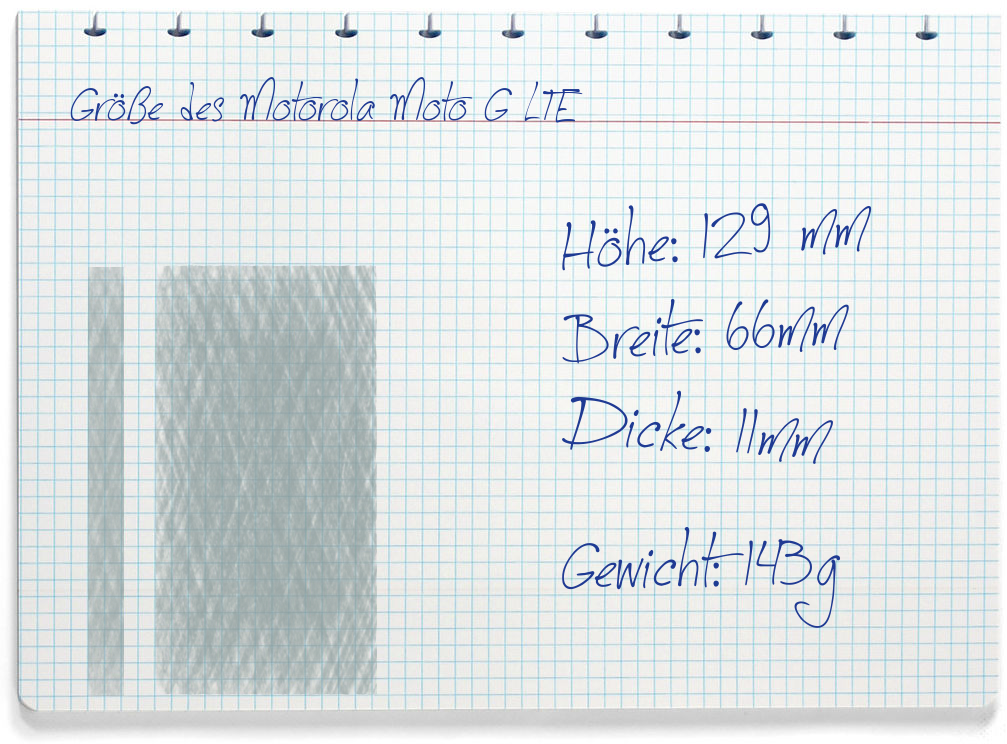 Größe des Motorola Moto G LTE
Höhe: 129 mm
Breite: 66mm
Dicke: 11mm
Gewicht: 143g